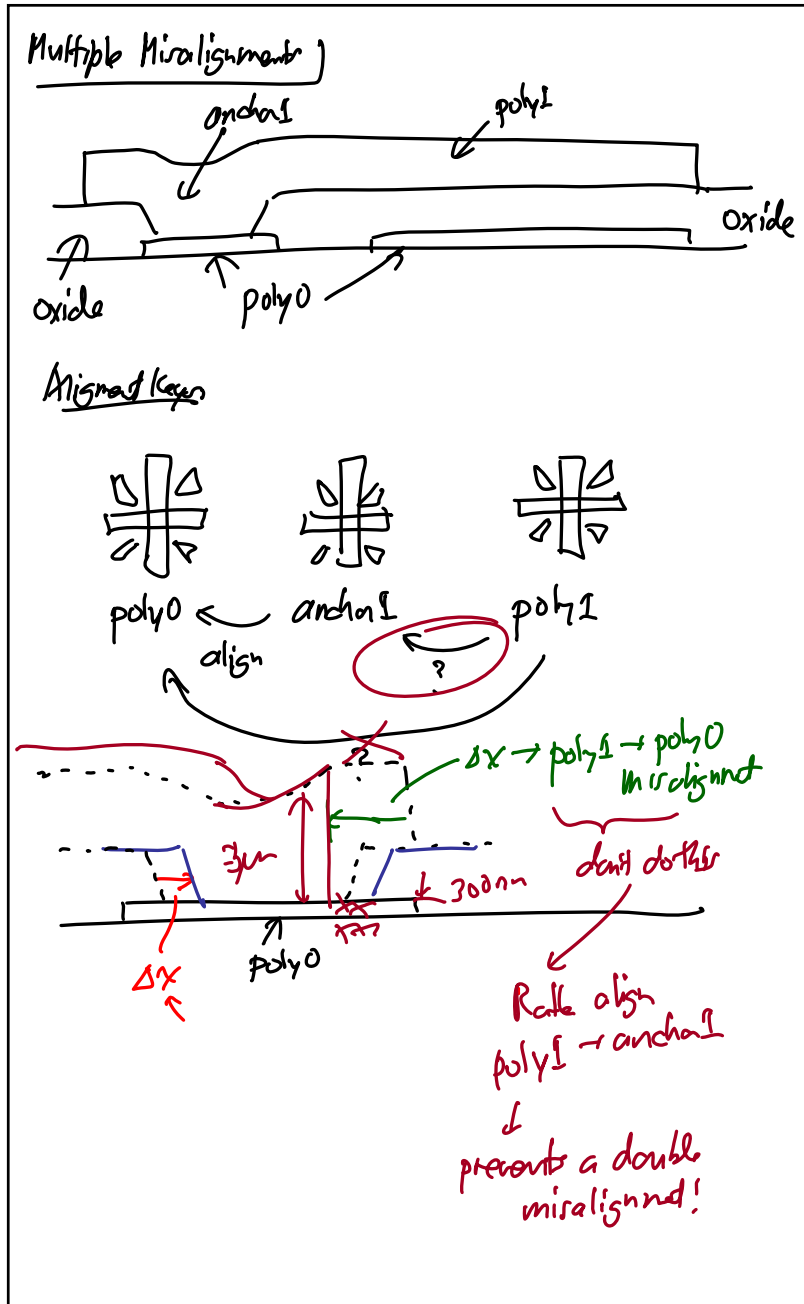 Multiple Misalignments
anchor1
poly1
oxide
oxide
poly0
Alignment Keys
poly0
anchor1
poly1
align
?
?
Δx → poly1 → poly0
misalignment
3μm
don't do this
300nm
poly0
Δx
Rather align
poly1 → anchor1
↓
prevents a double
misalignment!